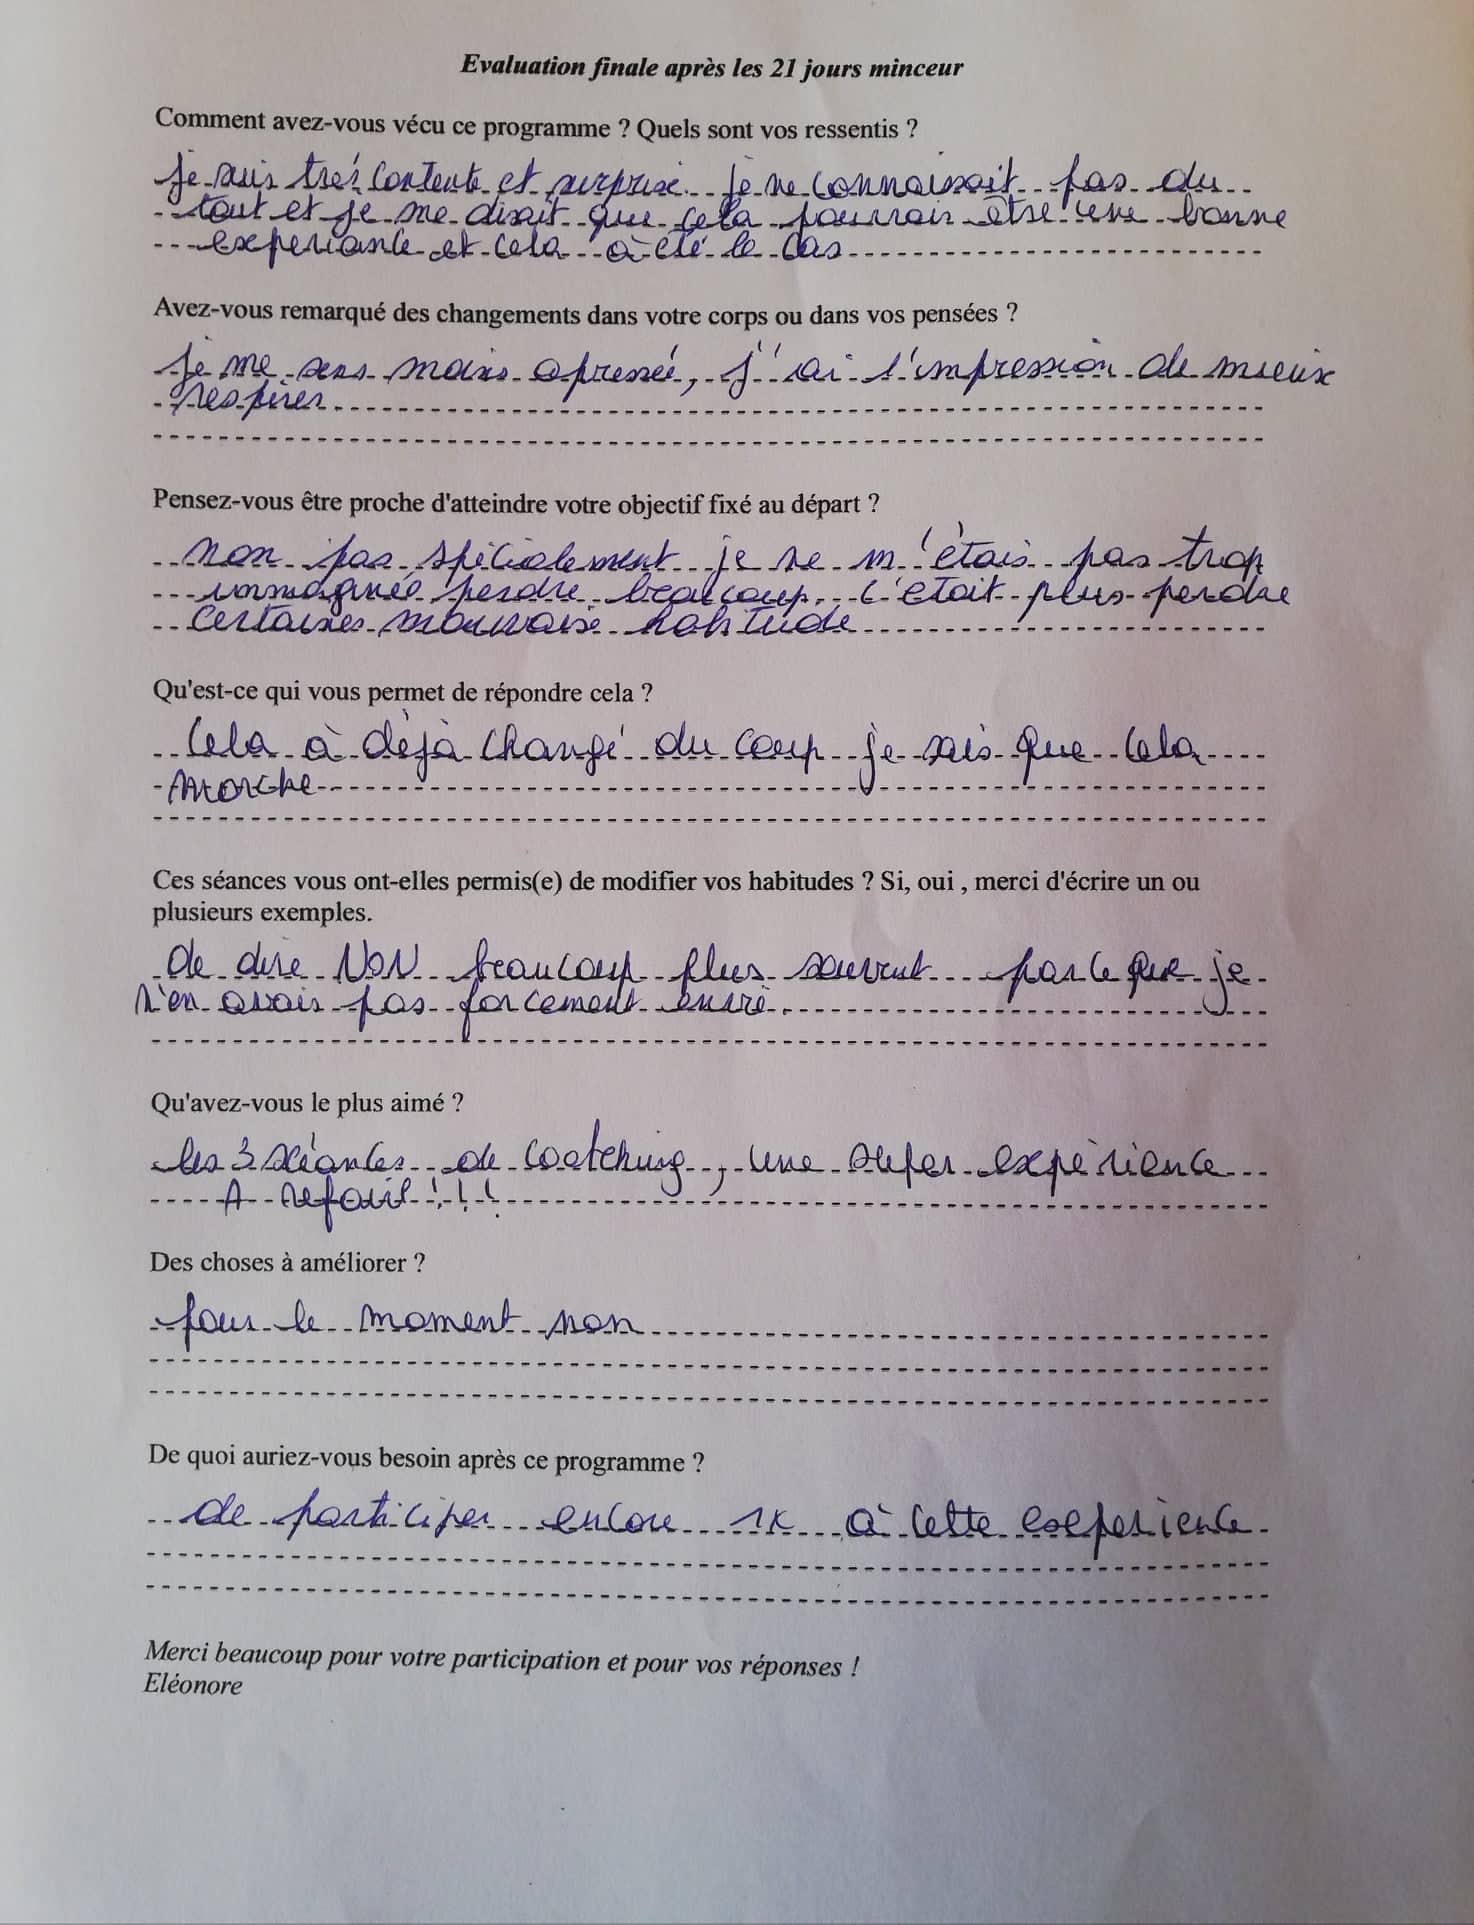 Evaluation finale après les 21 jours minceur
Comment avez-vous vécu ce programme ? Quels sont vos ressentis ?
je suis trés contente et surprise. je ne connaissait pas du
tout et je me disait que cela pourrais être une bonne
experiance et cela à été le cas
Avez-vous remarqué des changements dans votre corps ou dans vos pensées ?
je me sens moins opressée, j'ai l'impression de mieux
respirer
Pensez-vous être proche d'atteindre votre objectif fixé au départ ?
non pas spécialement je ne m'étais pas trop
immaginée perdre beaucoup. C'était plus perdre
certaines mauvaise habitude
Qu'est-ce qui vous permet de répondre cela ?
Cela à déjà changé du coup je sais que cela
marche
Ces séances vous ont-elles permis(e) de modifier vos habitudes ? Si, oui , merci d'écrire un ou
plusieurs exemples.
de dire NON beaucoup plus souvent parce que je
n'en avais pas forcement envie.
Qu'avez-vous le plus aimé ?
les 3 séances de coatching, une super expérience
A refaire !!!
Des choses à améliorer ?
pour le moment non
De quoi auriez-vous besoin après ce programme ?
de participer encore 1x à cette experience
Merci beaucoup pour votre participation et pour vos réponses !
Eléonore